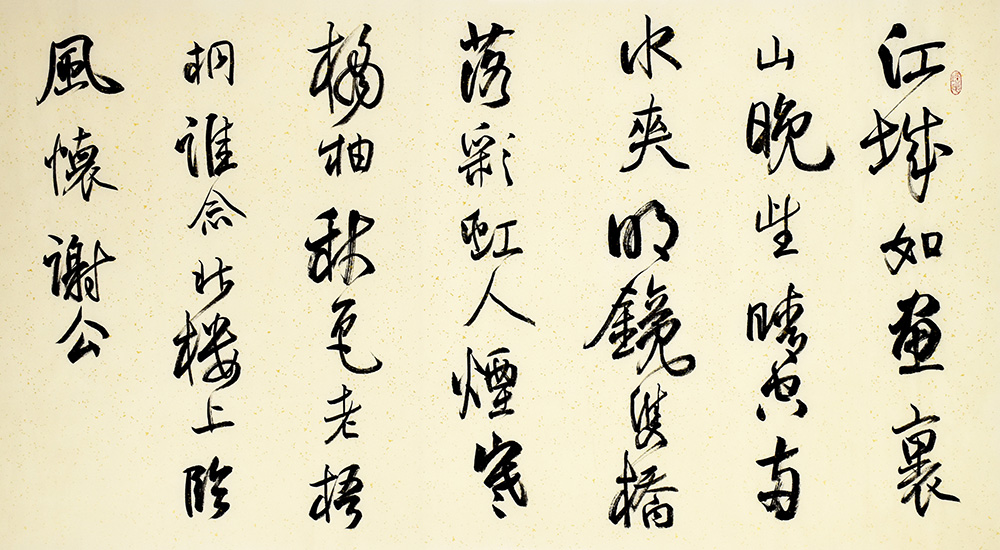 江城如畫裏
山晚望晴空兩
水夾明鏡雙橋
落彩虹人煙寒
橘柚秋色老梧
桐誰念北樓上臨
風懷謝公